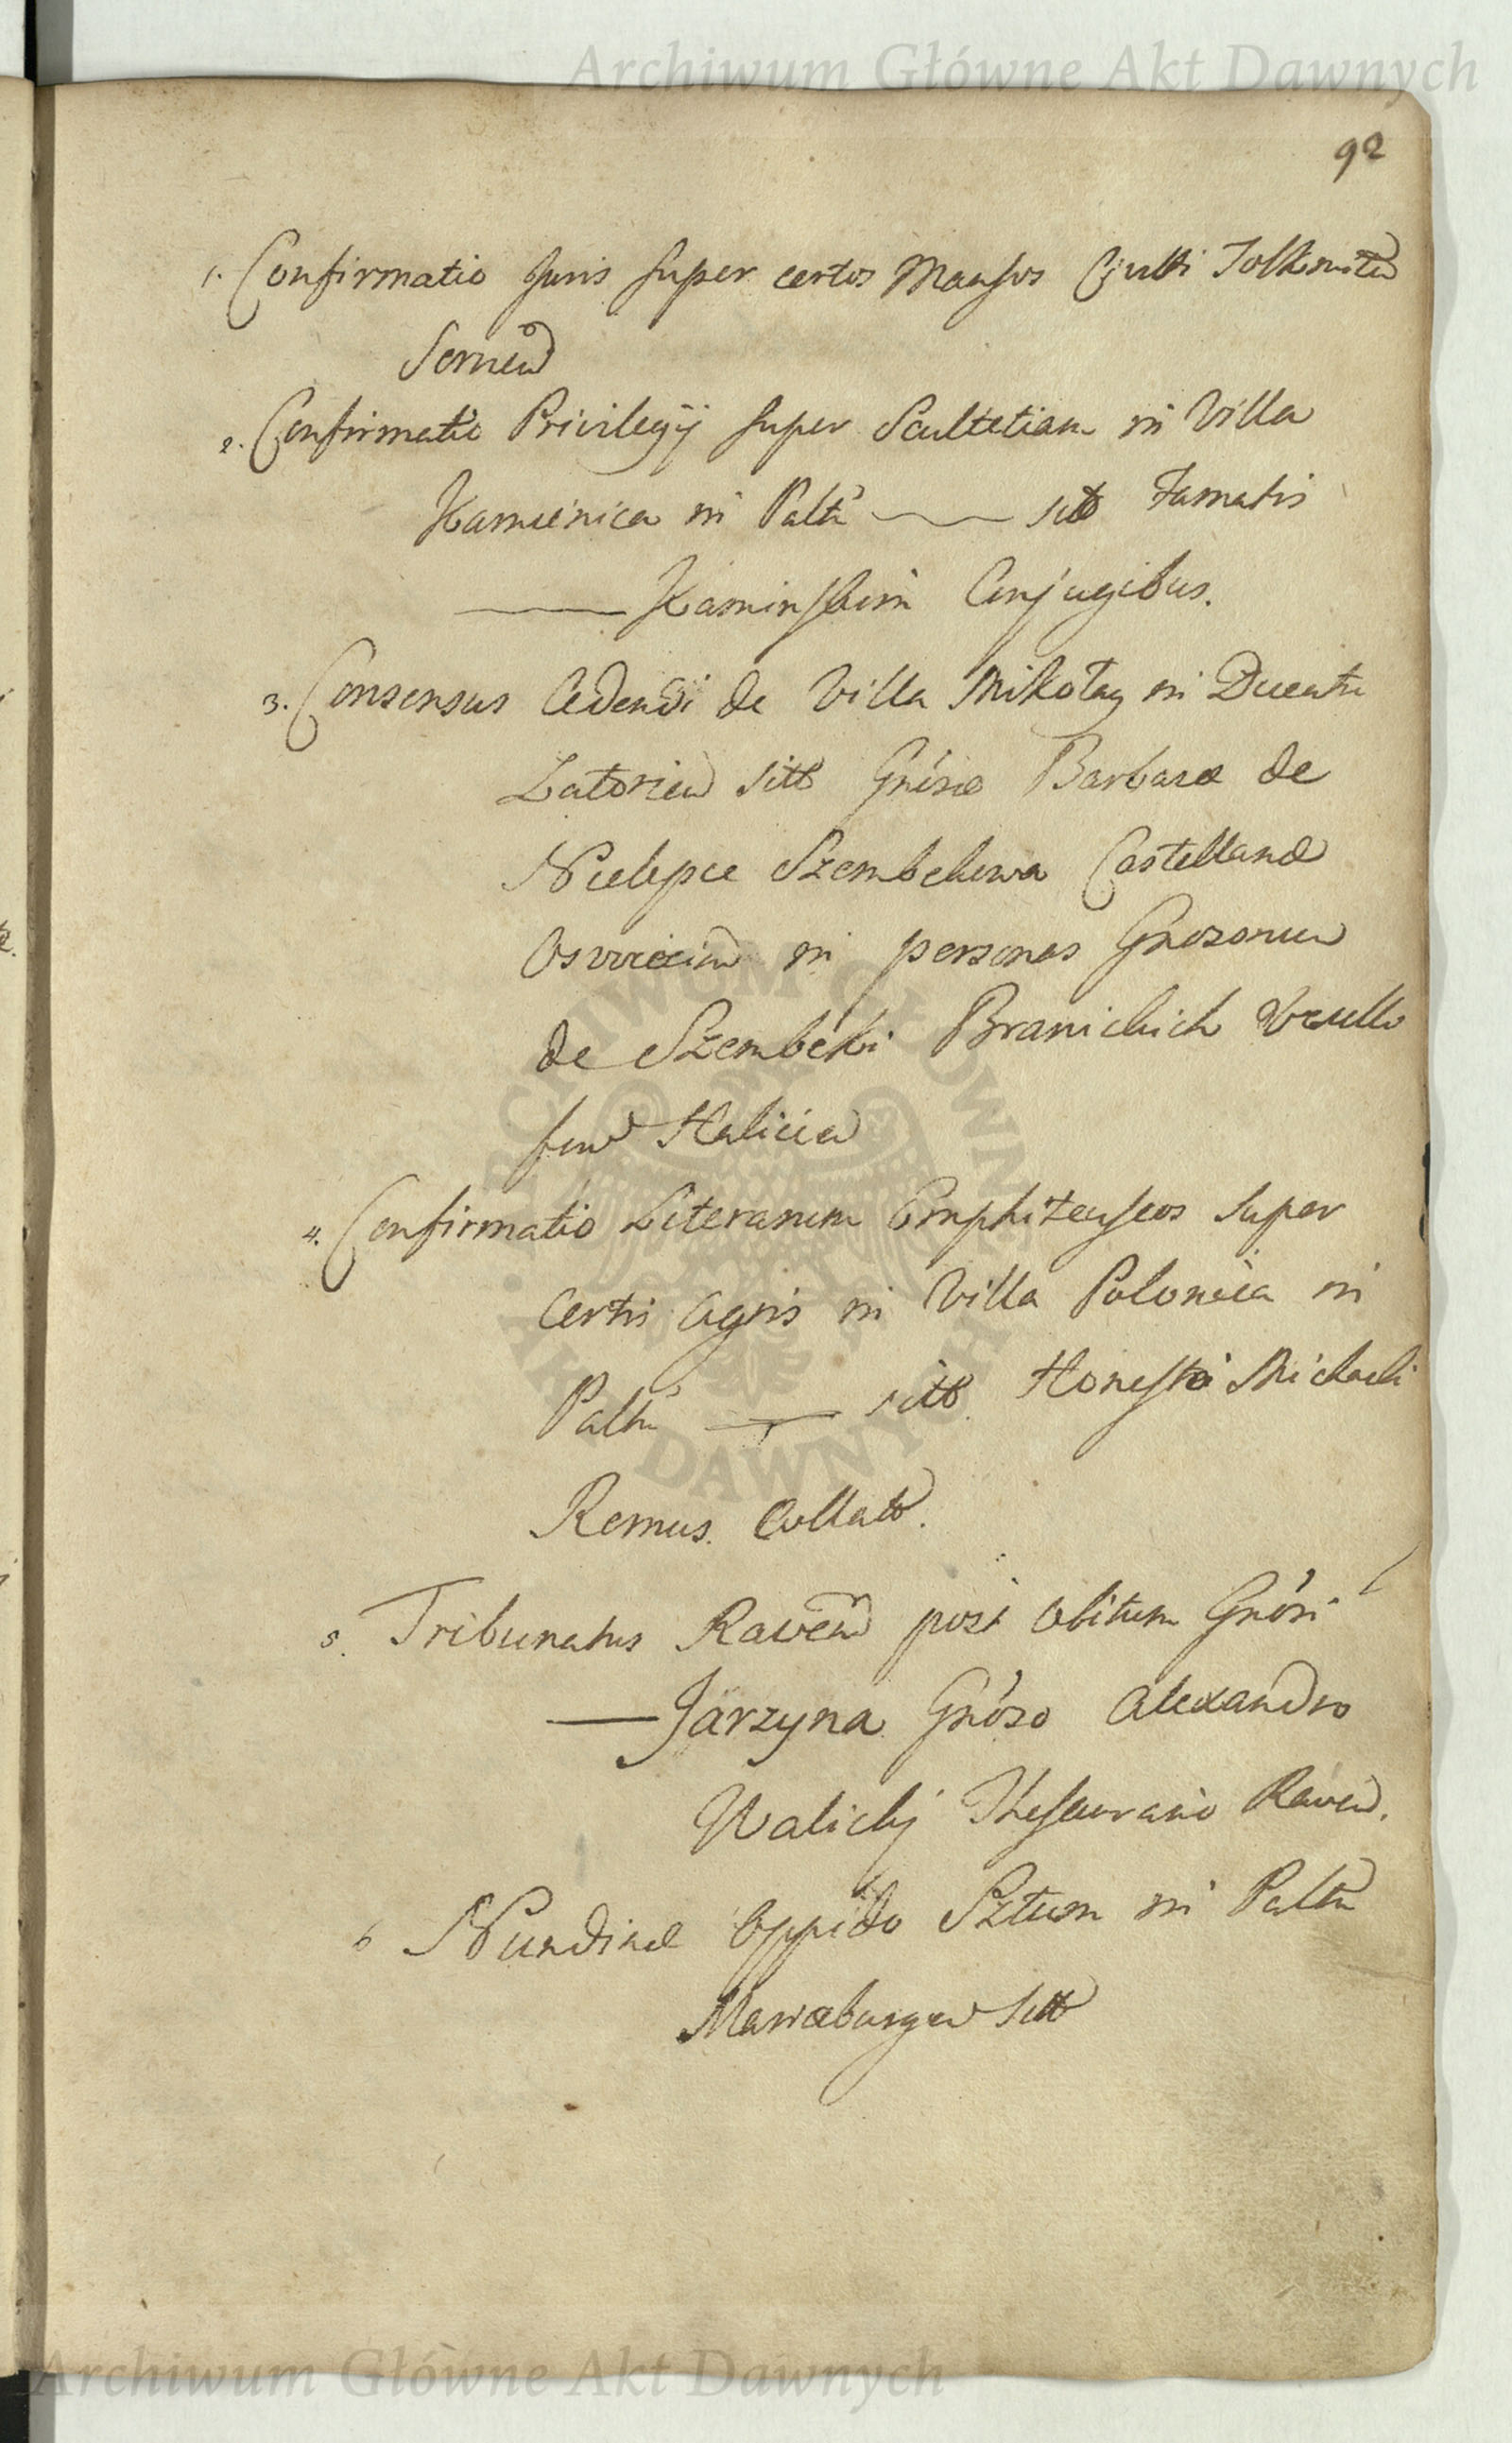 Archiwum Główne Akt Dawnych
92
1. Confirmatio Juris super certos Mansos Tolkmiten
2. Confirmatio Privilegij super Scultetiam in Villa
Kamienica in Paltu sitt Famatis
Kaminskim Conjugibus.
3. Consensus Cedendi de Villa Mikołay in Ducatu
Zatorien sitt Gnosæ Barbaræ de
Nielepce Szembekowa Castellanæ
Oswiecim in personas Gnosorum
de Szembeki Branickich
Halicien
4. Confirmatio Literarum Emphiteuseos super
certis Agris in Villa Polonica in
Paltu sitt. Honesto Michaeli
Remus. Collatt.
5. Tribunatus Raven post obitum Gnosi
Jarzyna Gnoso Alexandro
Walicki Thesaurario Raven.
6 Nundinæ Oppido Sztum in Paltu
Mariæburgen sitt
ARCHIWUM GŁÓWNE AKT DAWNYCH
Archiwum Główne Akt Dawnych